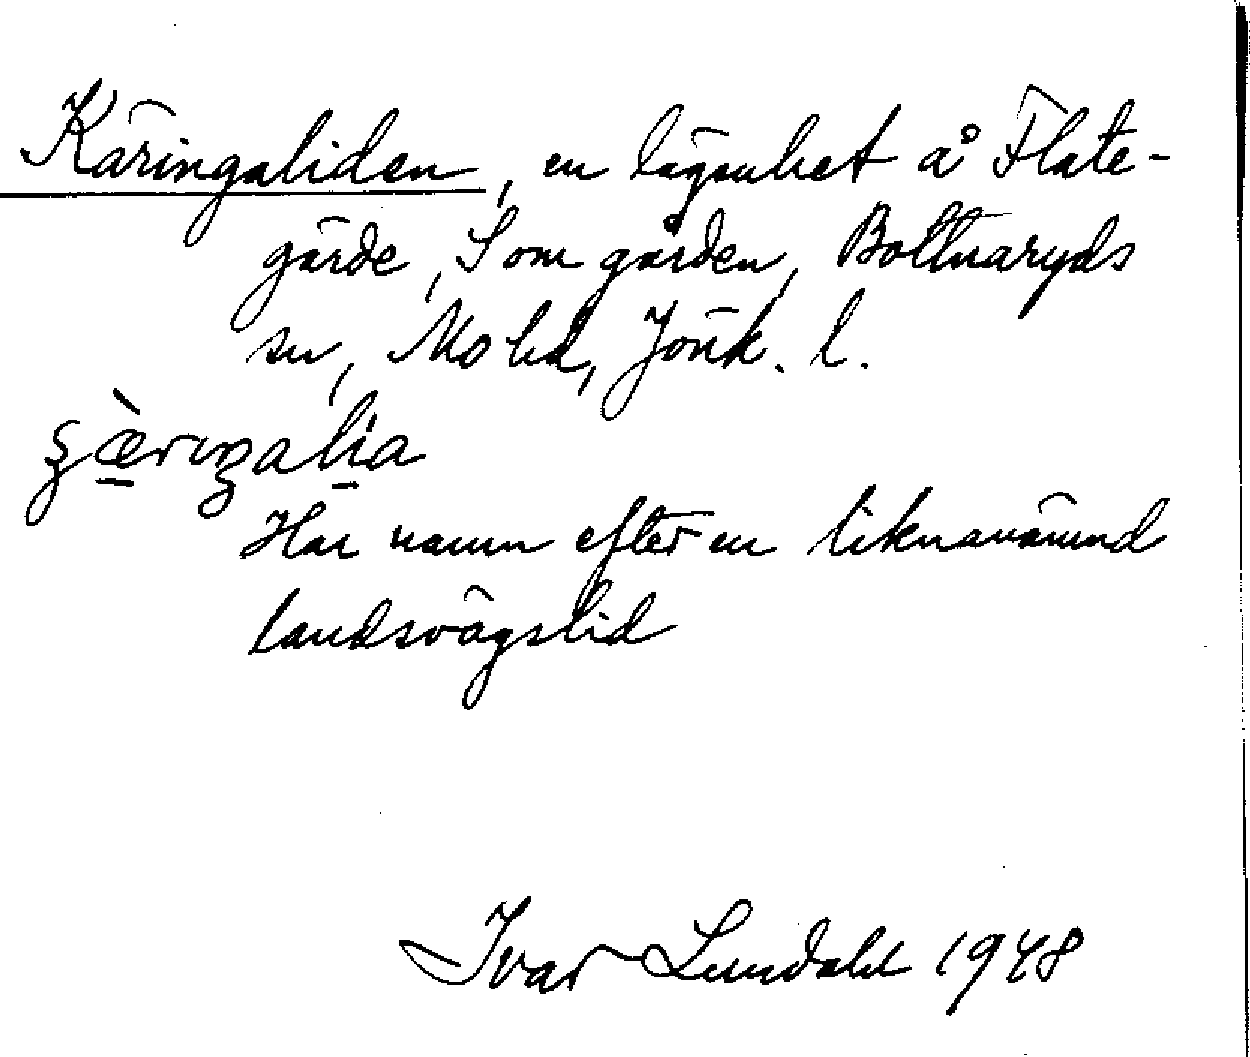 Käringaliden, en lägenhet å Flate-
gärde, Somgården, Bottnaryds
sn, Mo hd, Jönk. l.
Har namn efter en liknämnd
landsvägslid
Ivar Lundahl 1948